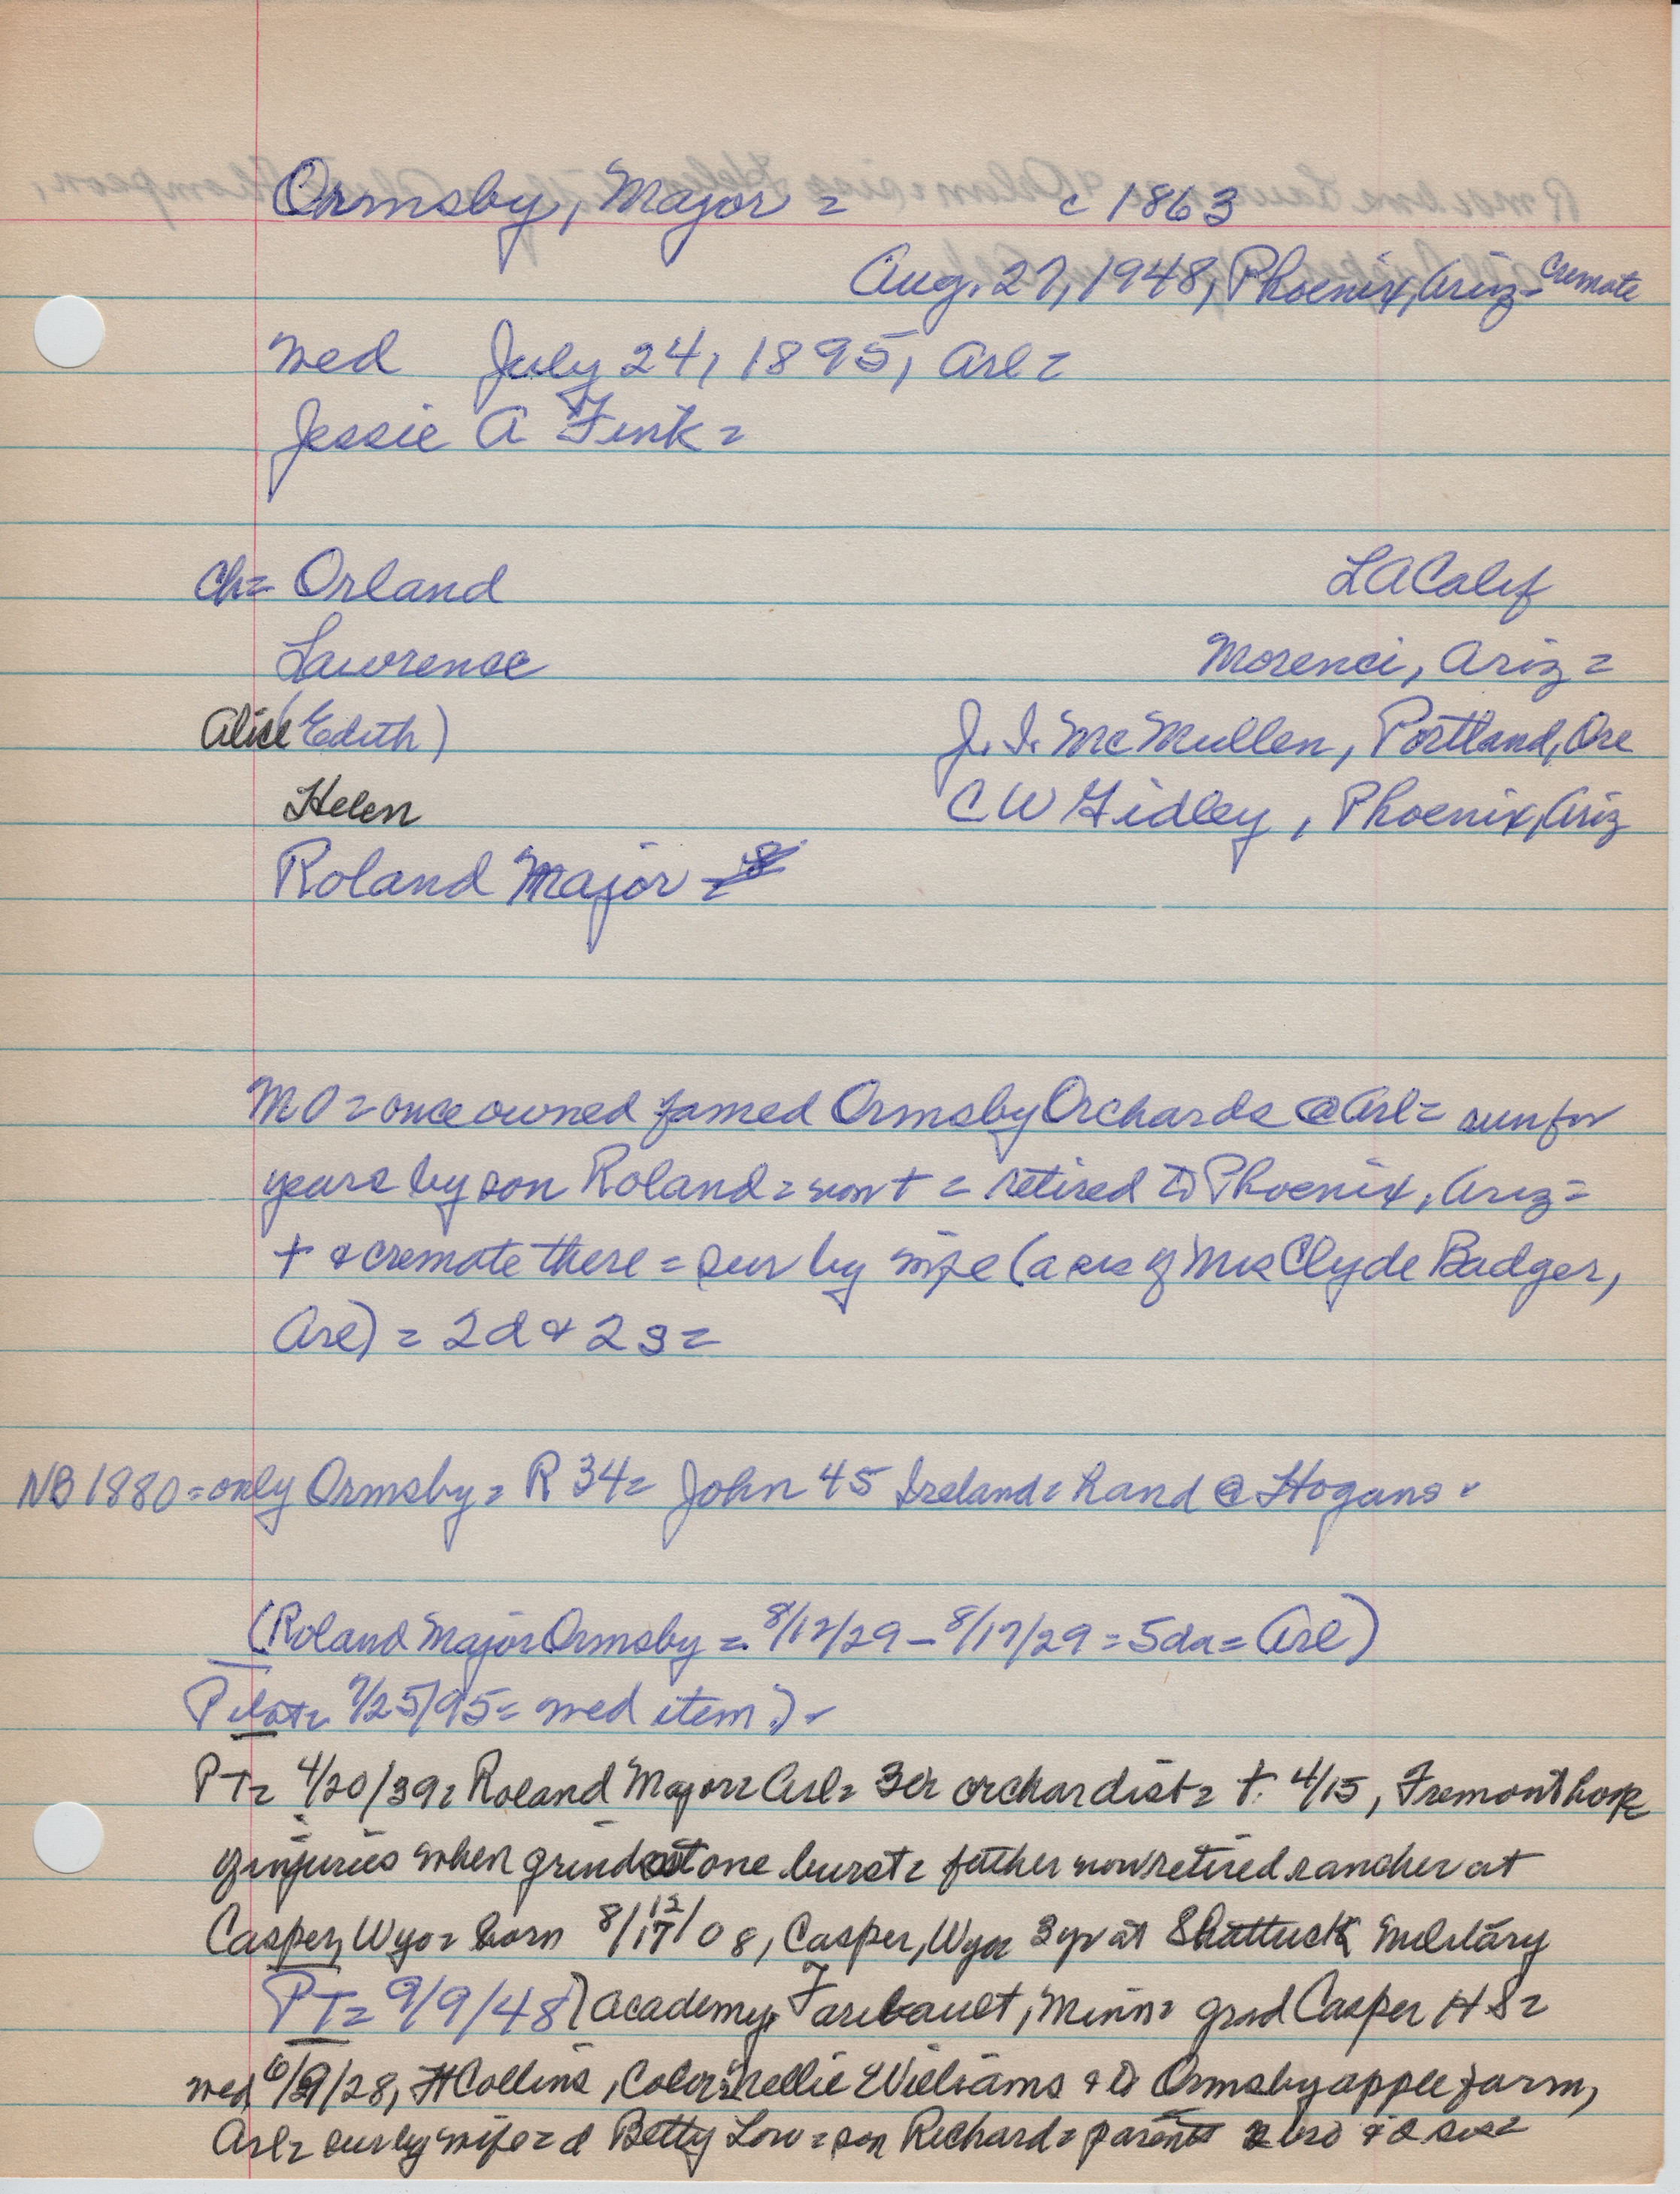 Ormsby, Major = c 1863
Aug. 27, 1948, Phoenix, Ariz = Cremate
Wed July 24, 1895, Arl =
Jessie A Fink =
Ch = Orland LA Calif
Lawrence Morenci, Ariz =
Alice (Edith) J. I. McMullen, Portland, Ore
Helen C W Gidley, Phoenix, Ariz
Roland Major =
M O = once owned famed Ormsby Orchards @ Arl = run for
years by son Roland = won't = retired to Phoenix, Ariz =
+ & cremate there = sur by wife (a sis of Mrs Clyde Badger,
Arl) = 2 d & 2 s =
NB 1880 = only Ormsby = R 34 = John 45 Ireland = hand @ Hogans =
(Roland Major Ormsby = 8/12/29 - 8/17/29 = 5 da = Arl)
Pilot = 7/25/95 = wed item) =
PT = 4/20/39 = Roland Major = Arl = 30 orchardist = + 4/15, Fremont hosp
of injuries when grindstone burst = father now retired rancher at
Casper, Wyo = born 8/17/08, 12 Casper, Wyo 3 yr at Shattuck Military
PT = 9/9/48) Academy, Faribault, Minn = grad Casper H S =
wed 6/9/28, Ft Collins, Colo = Nellie Williams & to Ormsby apple farm,
Arl = sur by wife = d Betty Lou = son Richard = parents 2 bro & 2 sis =